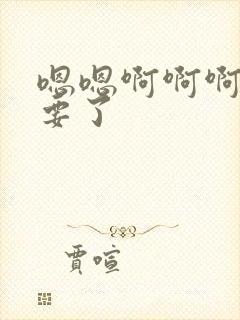 嗯嗯啊啊啊
要了
贾喧